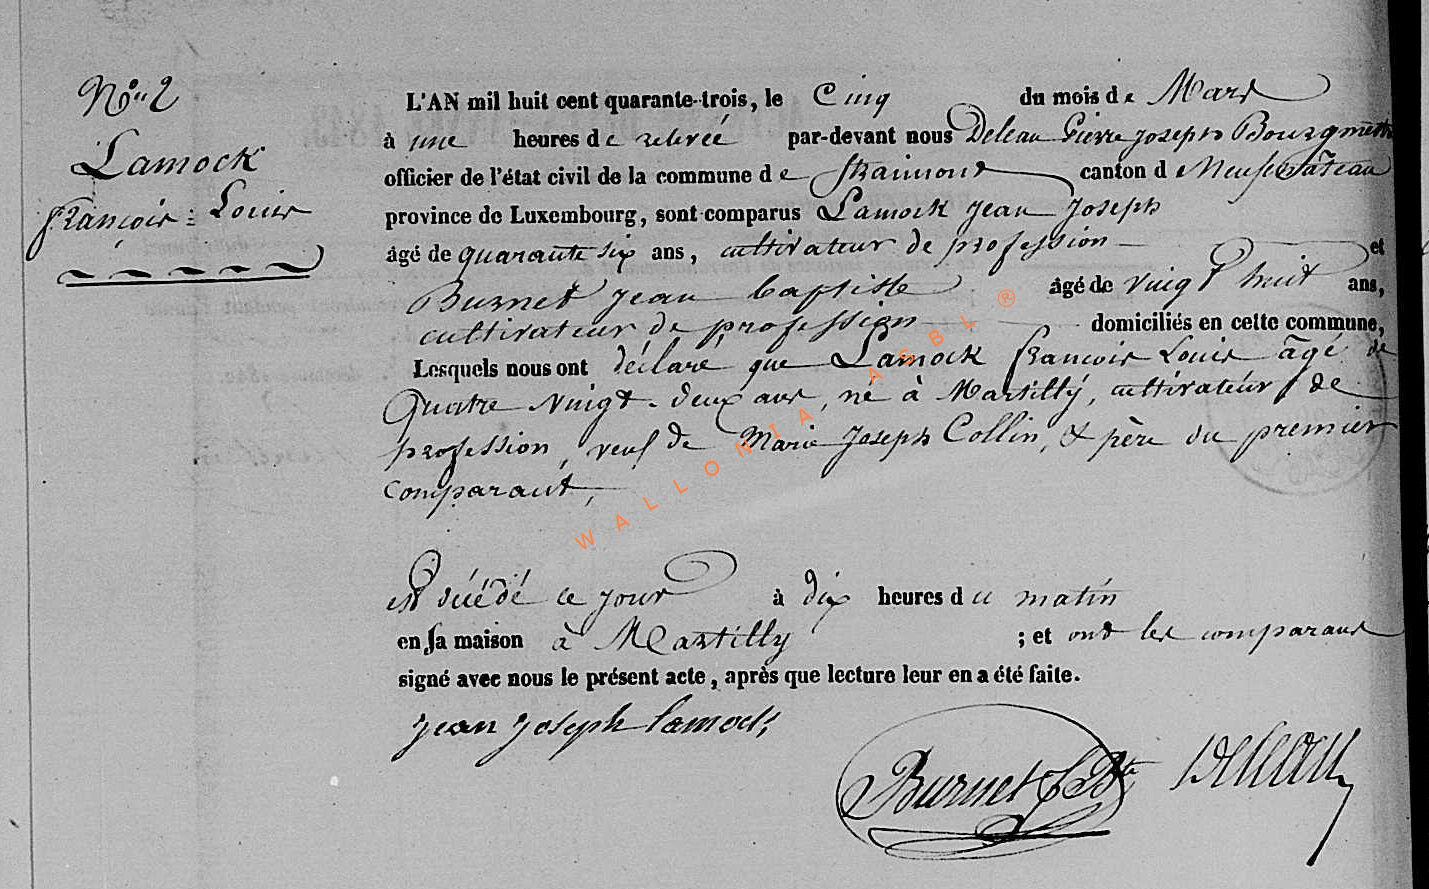 N° 2
Lamock
françois Louis
L'AN mil huit cent quarante-trois, le Cinq du mois de Mars
à une heures de relevée par-devant nous Deleau Pierre Joseph Bourgmettre
officier de l'état civil de la commune de Straimont canton de Neufchâteau
province de Luxembourg, sont comparus Lamock Jean Joseph
âgé de quarante six ans, cultivateur de profession et
Burnet Jean baptiste âgé de vingt huit ans,
cultivateur de profession domiciliés en cette commune,
Lesquels nous ont déclaré que Lamock francois Louis âgé de
Quatre Vingt-deux ans, né à Martilly, cultivateur de
profession, veuf de Marie Joseph Collin, & père du premier
comparant,
est décédé ce jour à dix heures du matin
en sa maison à Martilly ; et ont les comparans
signé avec nous le présent acte, après que lecture leur en a été faite.
Jean Joseph lamock
Burnet J Bte Deleau
WALLONIA ASBL ®